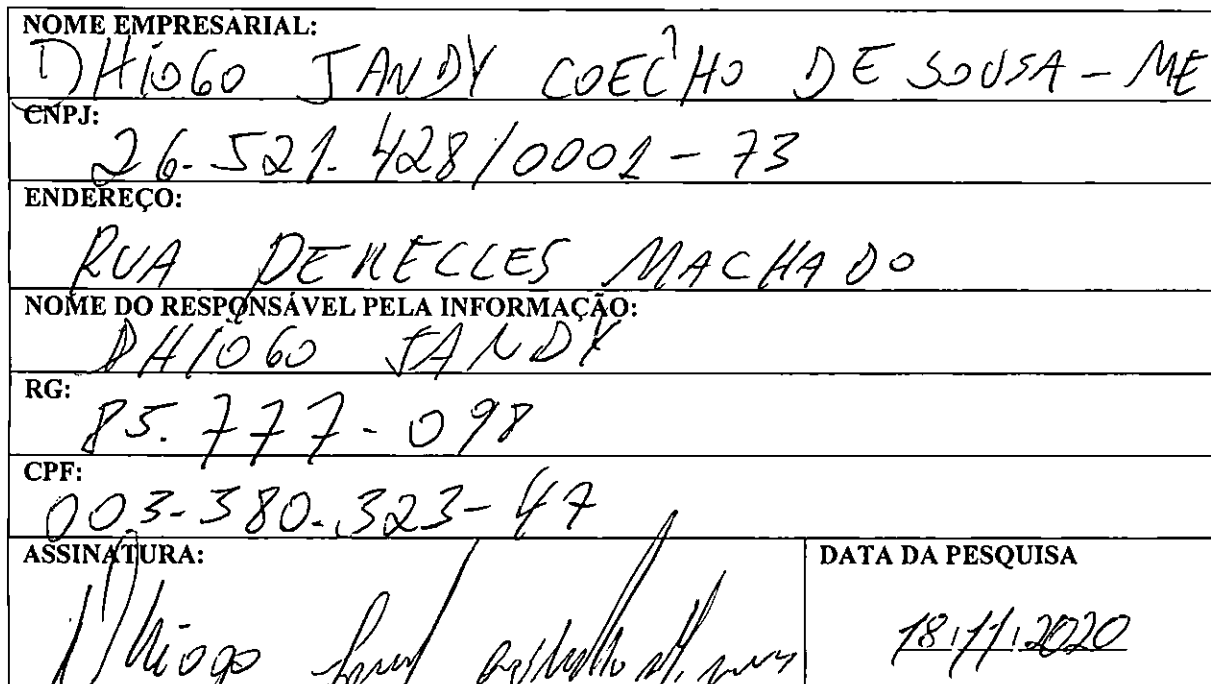 NOME EMPRESARIAL:
DHIOGO JANDY COELHO DE SOUSA - ME
CNPJ:
26.521.428/0001-73
ENDEREÇO:
RUA DERECLES MACHADO
NOME DO RESPONSÁVEL PELA INFORMAÇÃO:
DHIOGO JANDY
RG:
85.777-098
CPF:
003-380.323-47
ASSINATURA:
DATA DA PESQUISA
Dhiogo
18/11/2020